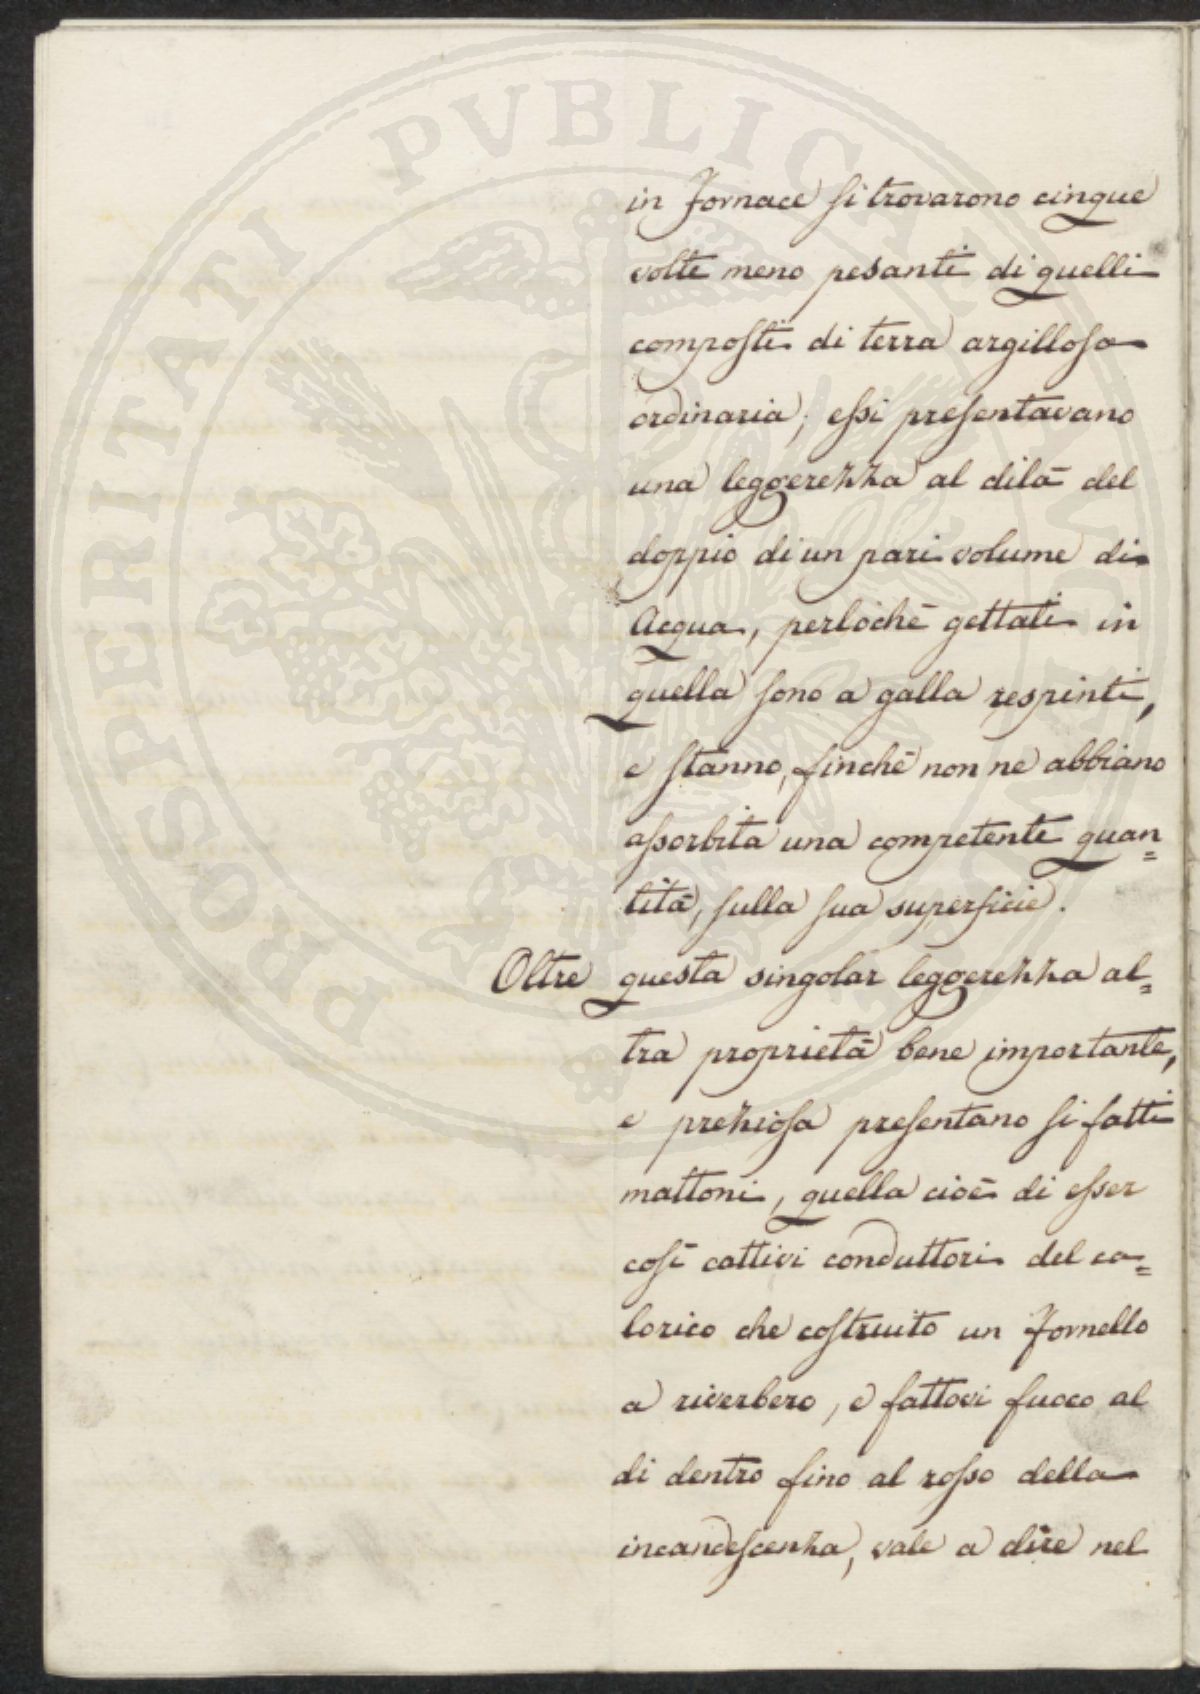 PROSPERITATI PVBLICAE AVGENDAE
in Fornace si trovarono cinque
volte meno pesanti di quelli
composti di terra argillosa
ordinaria; essi presentavano
una leggerezza al dilà del
doppio di un pari volume di
Acqua, perlochè gettati in
quella sono a galla respinti,
e stanno, finchè non ne abbiano
assorbita una competente quan=
tità, sulla sua superficie.
Oltre questa singolar leggerezza al=
tra proprietà bene importante,
e preziosa presentano si fatti
mattoni, quella cioè di esser
così cattivi conduttori del ca=
lorico che costruito un Fornello
a riverbero, e fattovi fuoco al
di dentro fino al rosso della
incandescenza, vale a dire nel